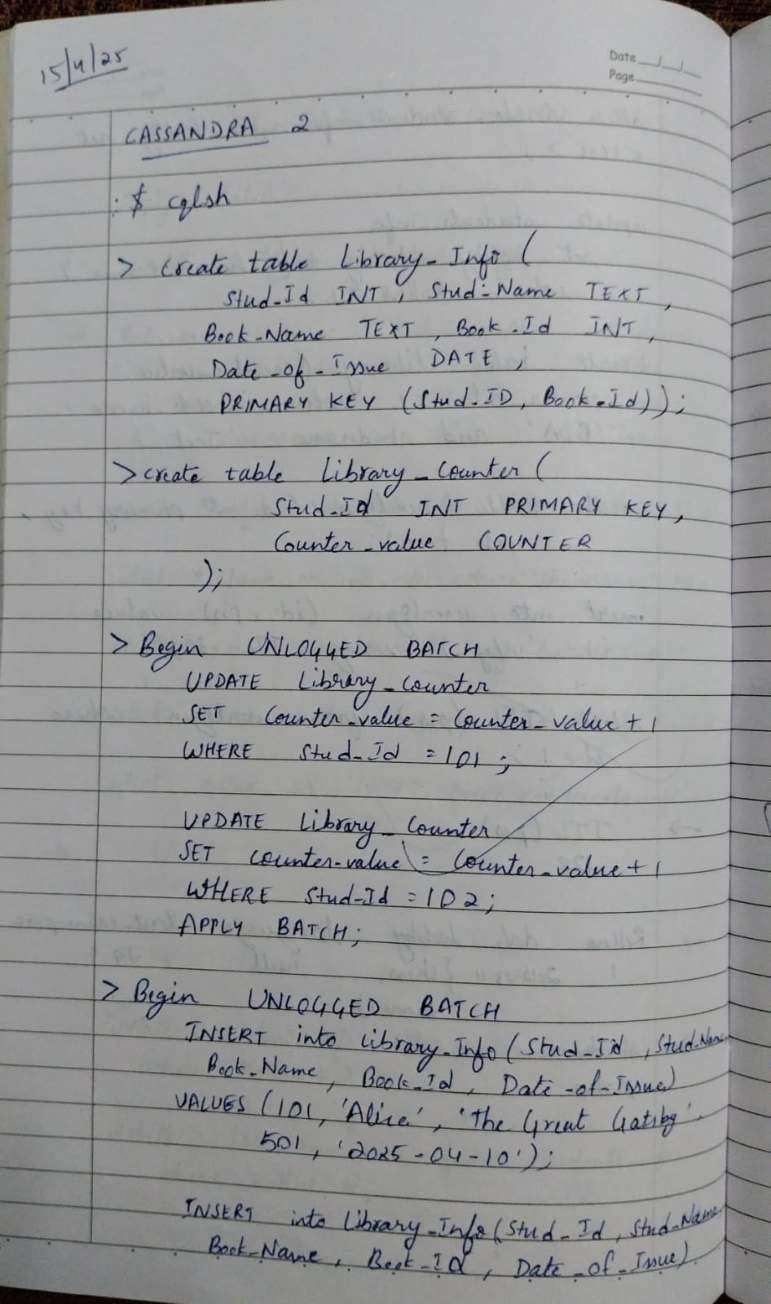 15/4/25
Date
Page
CASSANDRA 2
:$ cqlsh
> create table Library_Info (
Stud_Id INT, Stud_Name TEXT,
Book_Name TEXT, Book_Id INT,
Date_of_Issue DATE,
PRIMARY KEY (Stud_ID, Book_Id));
> create table Library_Counter (
Stud_Id INT PRIMARY KEY,
Counter_value COUNTER
);
> Begin UNLOGGED BATCH
UPDATE Library_Counter
SET Counter_value = Counter_value + 1
WHERE Stud_Id = 101;
UPDATE Library_Counter
SET Counter_value = Counter_value + 1
WHERE Stud_Id = 102;
APPLY BATCH;
> Begin UNLOGGED BATCH
INSERT into Library_Info (Stud_Id, Stud_Name
Book_Name, Book_Id, Date_of_Issue)
VALUES (101, 'Alice', 'The Great Gatsby'
501, '2025-04-10');
INSERT into Library_Info (Stud_Id, Stud_Name
Book_Name, Book_Id, Date_of_Issue)